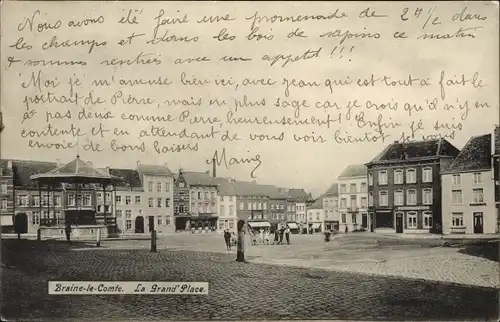 Nous avons été faire une promenade de 2 h 1/2 dans
les champs et dans les bois de sapins ce matin
& sommes rentrés avec un appetit !!!
Moi je m'amuse bien ici, avec Jean qui est tout à fait le
portrait de Pierre, mais en plus sage car je crois qu'il n'y en
a pas deux comme Pierre, heureusement! Enfin je suis
contente et en attendant de vous voir bientôt, je vous
envoie de bons baisers
Braine-le-Comte. La Grand'Place.